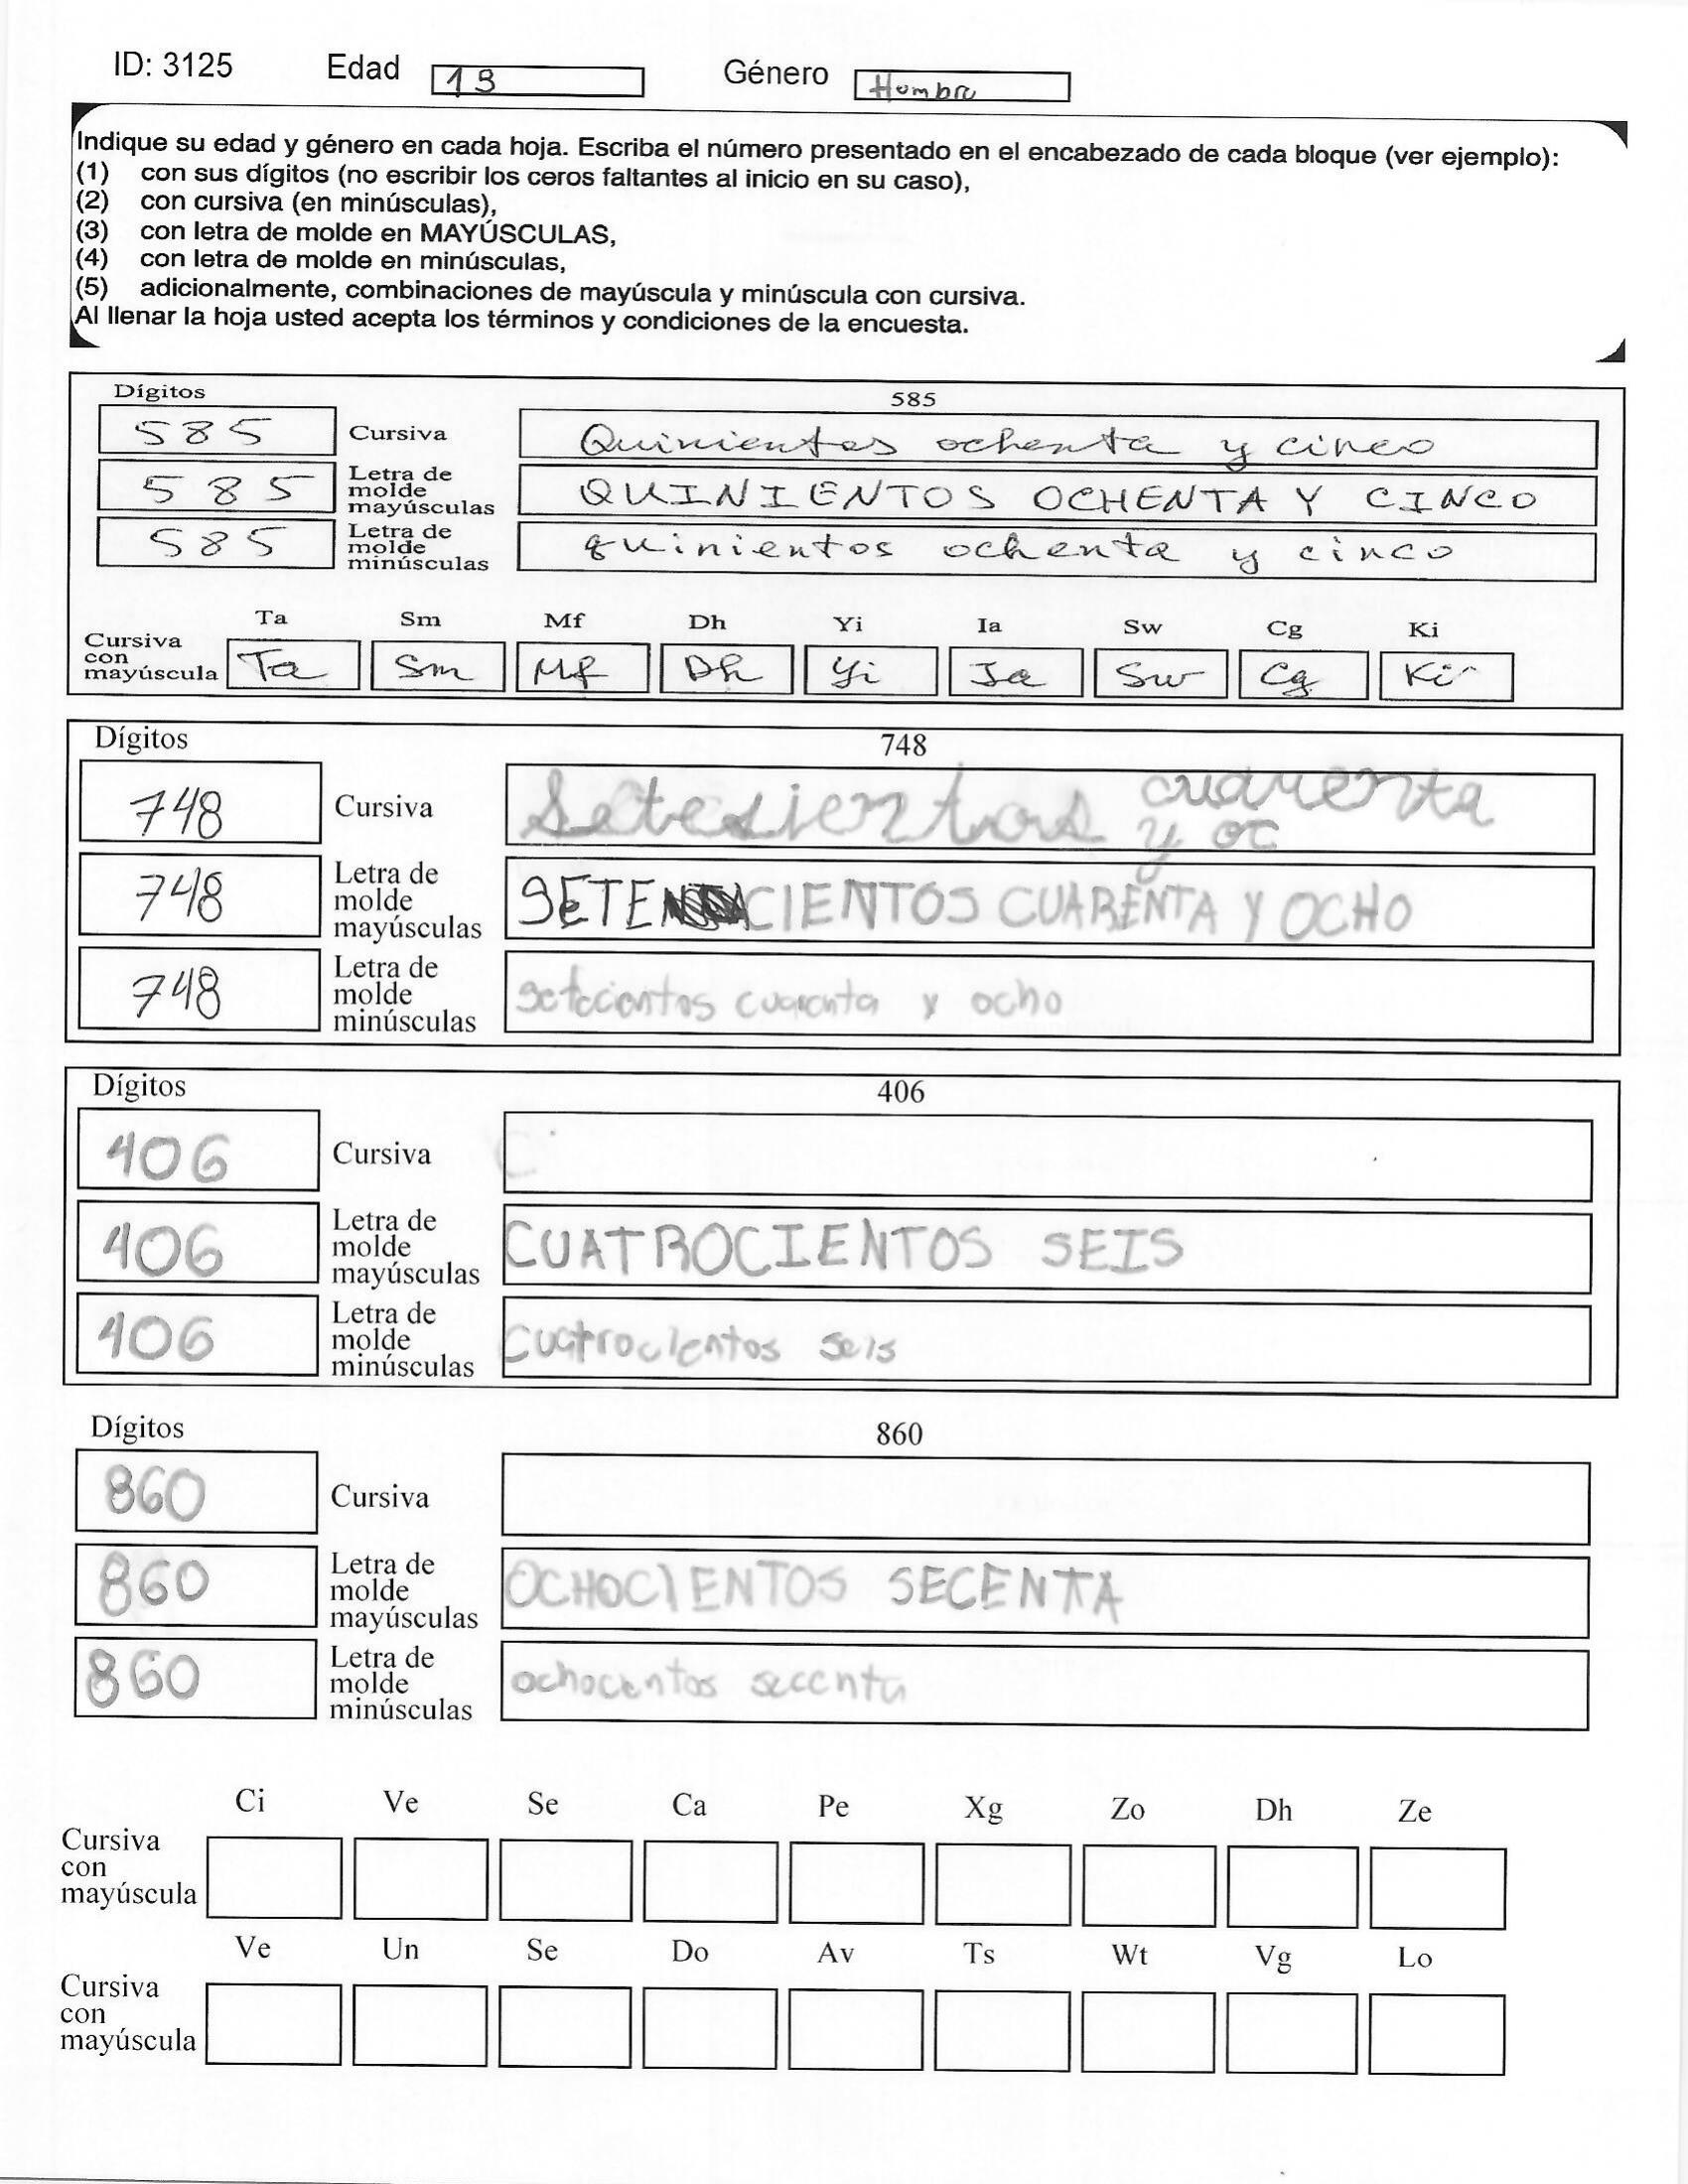 ID: 3125 Edad 13 Género Hombre
Indique su edad y género en cada hoja. Escriba el número presentado en el encabezado de cada bloque (ver ejemplo):
(1) con sus dígitos (no escribir los ceros faltantes al inicio en su caso),
(2) con cursiva (en minúsculas),
(3) con letra de molde en MAYÚSCULAS,
(4) con letra de molde en minúsculas,
(5) adicionalmente, combinaciones de mayúscula y minúscula con cursiva.
Al llenar la hoja usted acepta los términos y condiciones de la encuesta.
Dígitos 585
585 Cursiva Quinientos ochenta y cinco
585 Letra de molde mayúsculas QUINIENTOS OCHENTA Y CINCO
585 Letra de molde minúsculas quinientos ochenta y cinco
Ta Sm Mf Dh Yi Ia Sw Cg Ki
Cursiva con mayúscula Ta Sm Mf Dh Yi Ia Sw Cg Ki
Dígitos 748
748 Cursiva Setesientos cuarenta
y oc
748 Letra de molde mayúsculas SETE CIENTOS CUARENTA Y OCHO
748 Letra de molde minúsculas setecientos cuarenta y ocho
Dígitos 406
406 Cursiva
406 Letra de molde mayúsculas CUATROCIENTOS SEIS
406 Letra de molde minúsculas Cuatrocientos seis
Dígitos 860
860 Cursiva
860 Letra de molde mayúsculas OCHOCIENTOS SECENTA
860 Letra de molde minúsculas ochocentos secenta
Ci Ve Se Ca Pe Xg Zo Dh Ze
Cursiva con mayúscula
Ve Un Se Do Av Ts Wt Vg Lo
Cursiva con mayúscula